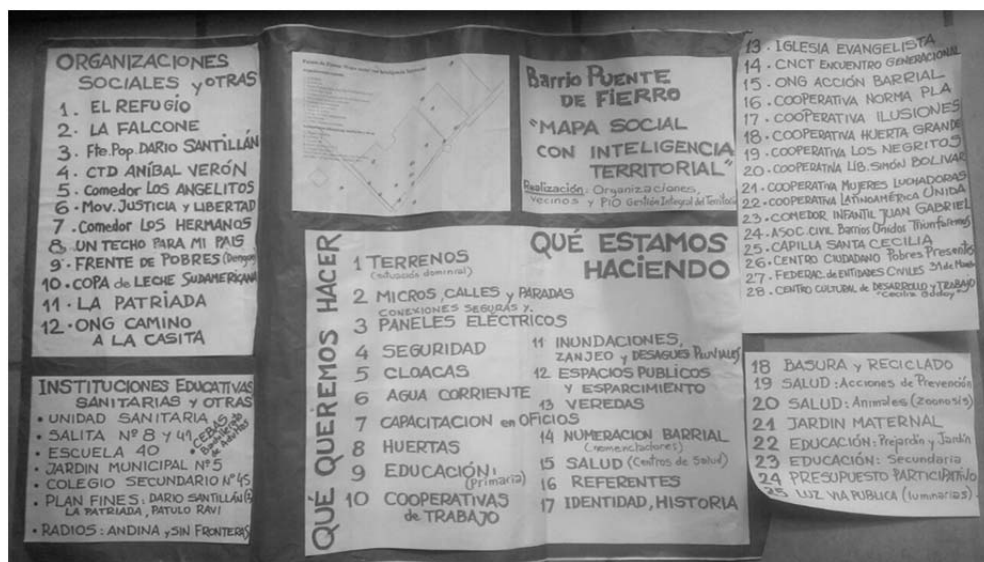 ORGANIZACIONES
SOCIALES y OTRAS
1. EL REFUGIO
2. LA FALCONE
3. Fte. Pop. DARIO SANTILLÁN
4. CTD ANÍBAL VERÓN
5. Comedor LOS ANGELITOS
6. Mov. JUSTICIA y LIBERTAD
7. Comedor LOS HERMANOS
8 UN TECHO PARA MI PAIS
9. FRENTE DE POBRES
10. COPA de LECHE SUDAMERICANA
11. LA PATRIADA
12. ONG CAMINO
A LA CASITA
INSTITUCIONES EDUCATIVAS
SANITARIAS y OTRAS
• UNIDAD SANITARIA
• SALITA Nº 8 y 41
• CEBAS
Bachillerato
de Adultos
• ESCUELA 40
• JARDIN MUNICIPAL Nº 5
• COLEGIO SECUNDARIO Nº 45
• PLAN FINES: DARIO SANTILLÁN
LA PATRIADA, PATULO RAVI
• RADIOS: ANDINA y SIN FRONTERAS
Barrio PUENTE
DE FIERRO
"MAPA SOCIAL
CON INTELIGENCIA
TERRITORIAL"
Realización: Organizaciones,
vecinos y PIO Gestión Integral del Territorio
QUÉ QUEREMOS HACER
QUÉ ESTAMOS
HACIENDO
1 TERRENOS
(situación dominial)
2 MICROS, CALLES y PARADAS
CONEXIONES SEGURAS Y.
3 PANELES ELÉCTRICOS
4 SEGURIDAD
5 CLOACAS
6 AGUA CORRIENTE
7 CAPACITACION en OFICIOS
8 HUERTAS
9 EDUCACIÓN:
(Primaria)
10 COOPERATIVAS
de TRABAJO
11 INUNDACIONES,
ZANJEO y DESAGUES PLUVIALES
12 ESPACIOS PUBLICOS
Y ESPARCIMIENTO
13 VEREDAS
14 NUMERACION BARRIAL
(nomencladores)
15 SALUD (Centros de Salud)
16 REFERENTES
17 IDENTIDAD, HISTORIA
13. IGLESIA EVANGELISTA
14. CNCT ENCUENTRO GENERACIONAL
15. ONG ACCIÓN BARRIAL
16. COOPERATIVA NORMA PLA
17. COOPERATIVA ILUSIONES
18. COOPERATIVA HUERTA GRANDE
19. COOPERATIVA LOS NEGRITOS
20. COOPERATIVA LIB. SIMÓN BOLIVAR
21. COOPERATIVA MUJERES LUCHADORAS
22. COOPERATIVA LATINOAMÉRICA UNIDA
23. COMEDOR INFANTIL JUAN GABRIEL
24. ASOC. CIVIL Barrios Unidos
25. CAPILLA SANTA CECILIA
26. CENTRO CIUDADANO Pobres Presentes
27. FEDERAC. de ENTIDADES CIVILES 31 de
28. CENTRO CULTURAL de DESARROLLO y TRABAJO
"Cecilia Godoy"
18 BASURA y RECICLADO
19 SALUD: Acciones de Prevención
20 SALUD: Animales (Zoonosis)
21 JARDIN MATERNAL
22 EDUCACIÓN: Prejardín y Jardín
23 EDUCACIÓN: Secundaria
24 PRESUPUESTO PARTICIPATIVO
25 LUZ VIA PUBLICA (luminarias)